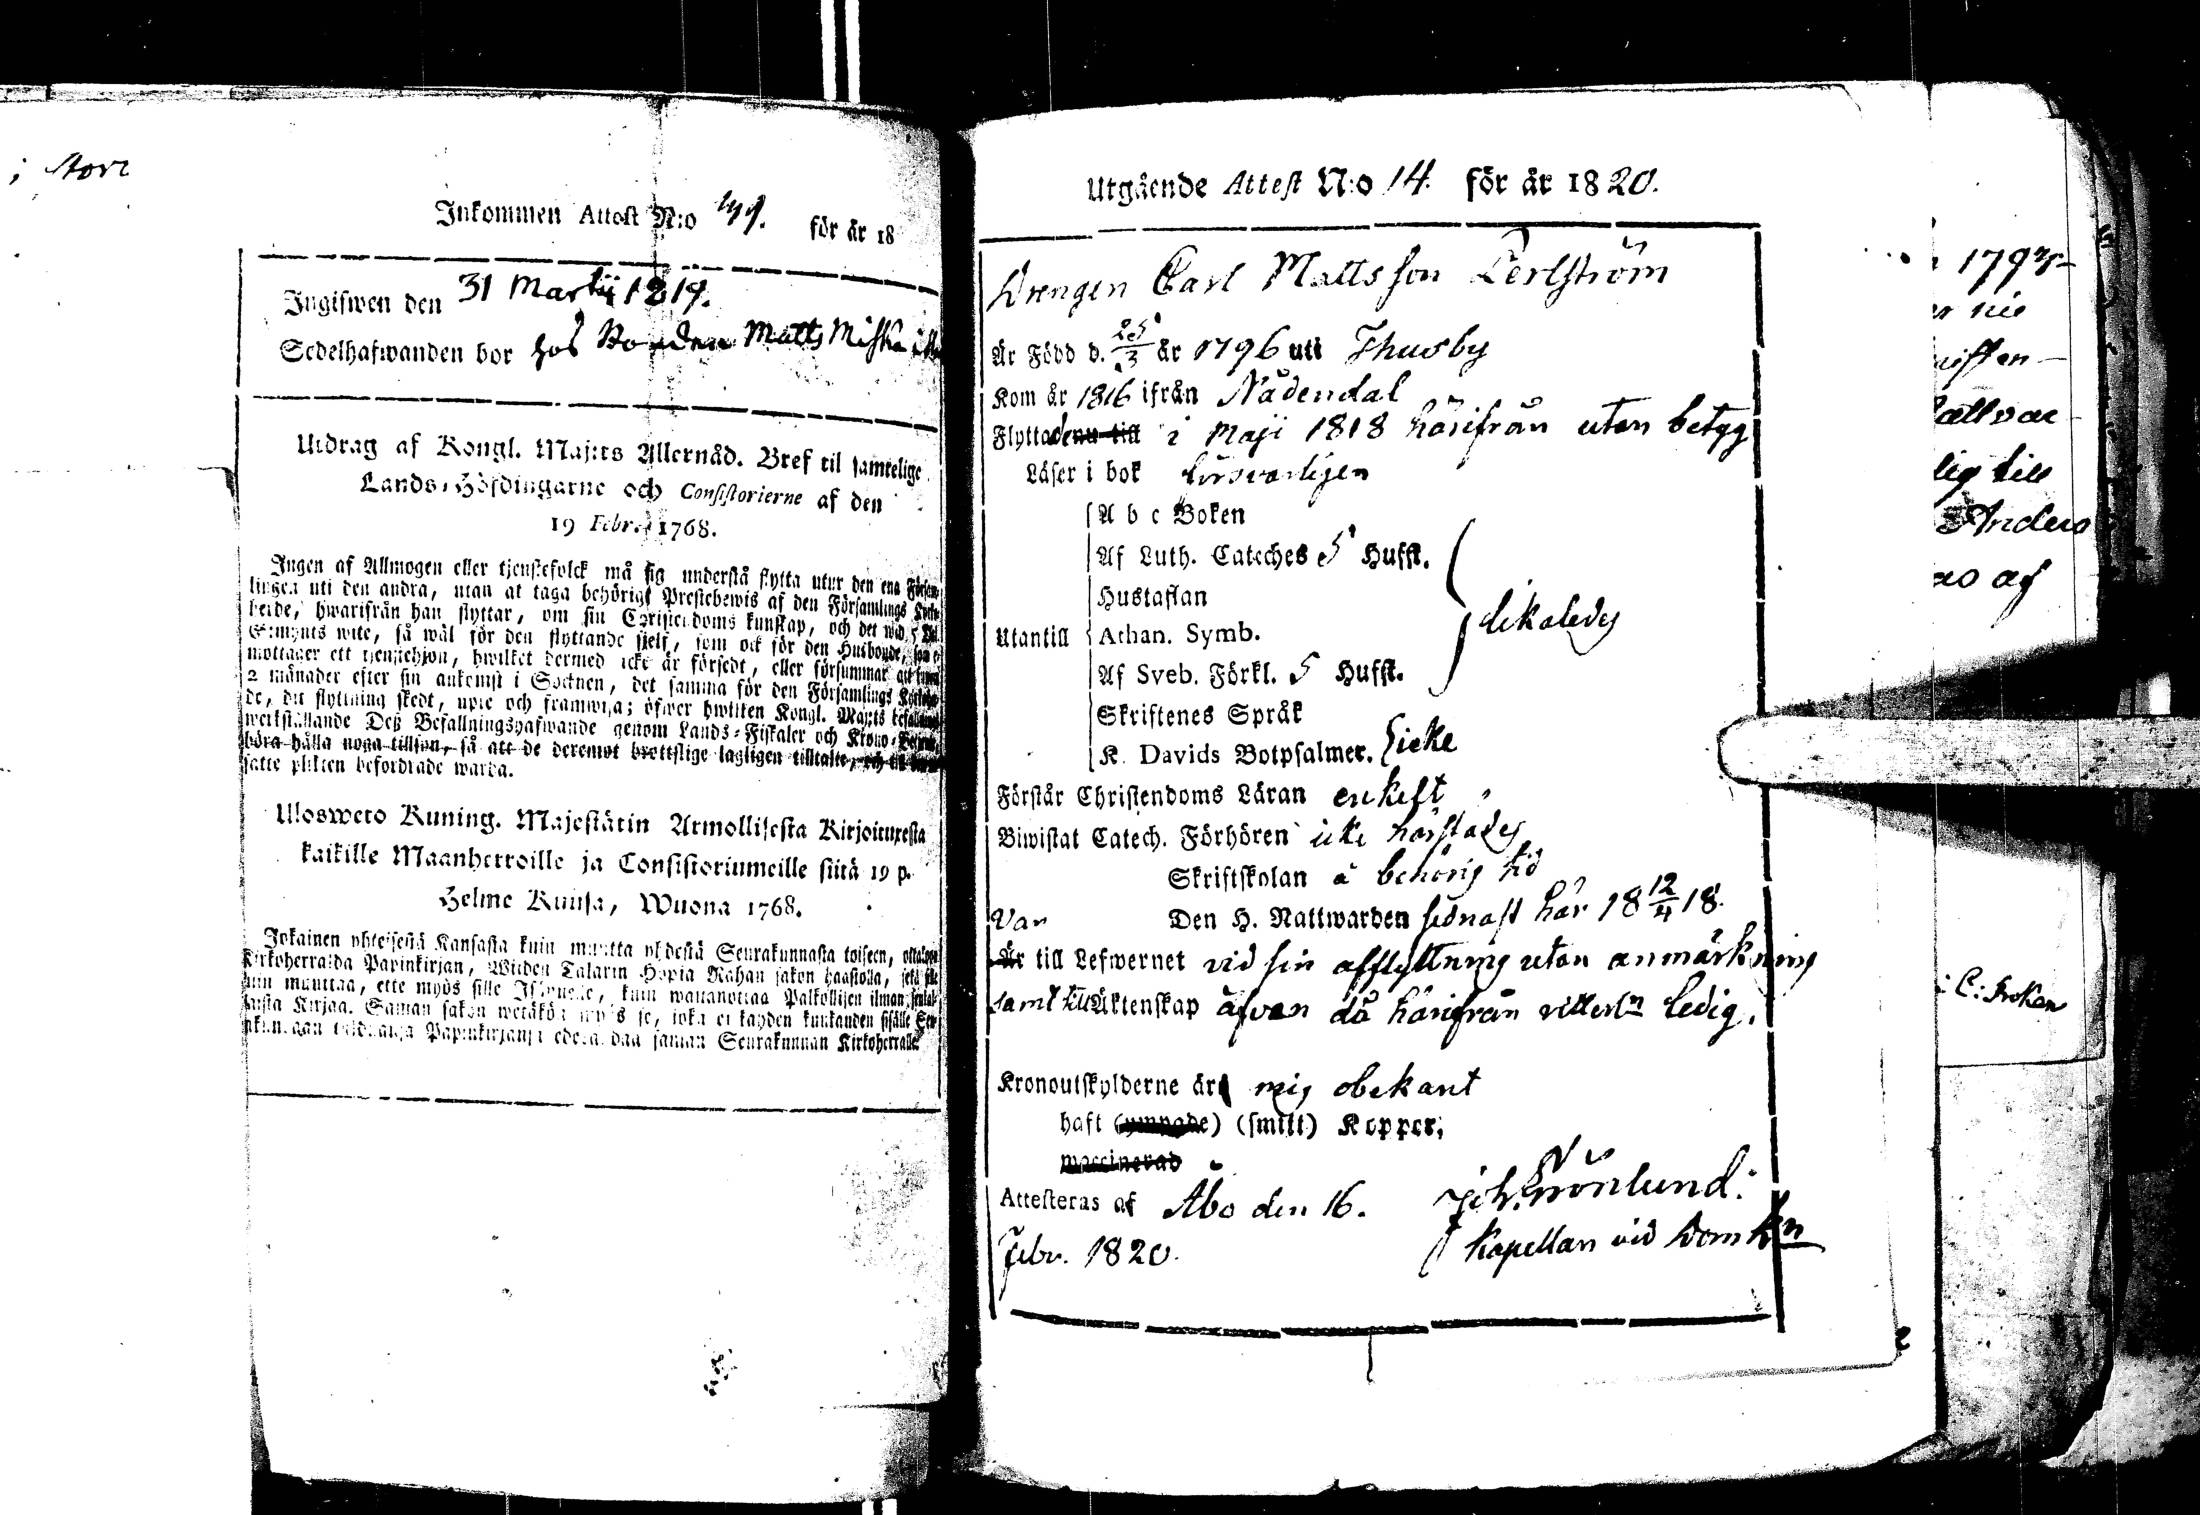 ; Stor
Inkommen Attest N:o för år 18
Ingifwen den 31 Martij 1819.
Sedelhafwanden bor hos Bonden Matts
Utdrag af Kongl. Maj:ts Allernåd. Bref til samtelige
Lands-Höfdingarne och Consistorierne af den
19 Febr. 1768.
Ingen af Allmogen eller tjenstefolck må sig understå flytta utur den ena Församl
lingen uti den andra, utan at taga behörigt Prestebewis af den Församlings Kyrko
herde, hwarifrån han flyttar, om sin Christendoms kunskap, och det wid 5 Dal.
S:mynts wite, så wäl för den flyttande sjelf, som ock för den Husbonde, som e
mottager ett tjenstehjon, hwilket dermed icke är försedt, eller försummar att inom
2 månader efter sin ankomst i Socknen, det samma för den Församlings Kyrkoher
de, dit flyttning skedt, upte och framwisa; öfwer hwilken Kongl. Maj:ts befallning
werkställande Deß Befallningshafwande genom Lands-Fiskaler och Krono-Betjente
böra hålla noga tillsyn, så att de deremot brottslige lagligen tilltalte, och til
satte plikten befordrade warda.
Ulosweto Kuning. Majestätin Armollisesta Kirjoituxesta
kaikille Maanherroille ja Consistoriumeille siitä 19 p.
Helme Kuusa, Wuona 1768.
Jokainen yhteisestä Kansasta kuin muutta yhdestä Seurakunnasta toiseen, ottakoon
Kirkoherralda Papinkirjan, Wiiden Talarin Hopia Rahan sakon haastolla, sekä sille
kuin muuttaa, ette myös sille Isännelle, kuin wastanottaa Palkollisen ilman
Kirjaa. Saman sakon wetäköön myös se, joka ei kahden kuukauden sisälle Seu
Papinkirjansa edes saman Seurakunnan Kirkoherralle.
Utgående Attest N:o 14. för år 1820.
Drengen Carl Mattsson Perlström
Är Född d. 25/3 år 1796 uti Thusby
Kom år 1816 ifrån Nådendal
Flyttade nu till i Maji 1818 härifrån utan betyg
Läser i bok försvarligen
A b c Boken
Af Luth. Cateches 5 Hufst.
Hustaflan
Utantill Athan. Symb. likaledes
Af Sveb. Förkl. 5 Hufst.
Skriftenes Språk
K. Davids Botpsalmer. icke
Förstår Christendoms Läran enkelt
Biwistat Catech. Förhören icke härstädes
Skriftskolan å behörig tid
Var Den H. Nattwarden sednast här 18 12/4 18.
Är till Lefwernet vid sin afflyttning utan anmärkning
samt till Äktenskap äfven då härifrån veterl:n ledig.
Kronoutskylderne är mig obekant
haft (ympade) (smitt) Koppor;
waccinerad
Attesteras af Åbo den 16. Joh. Grönlund.
Febr. 1820. Kapellan vid Domk:n
1793
Anders
af